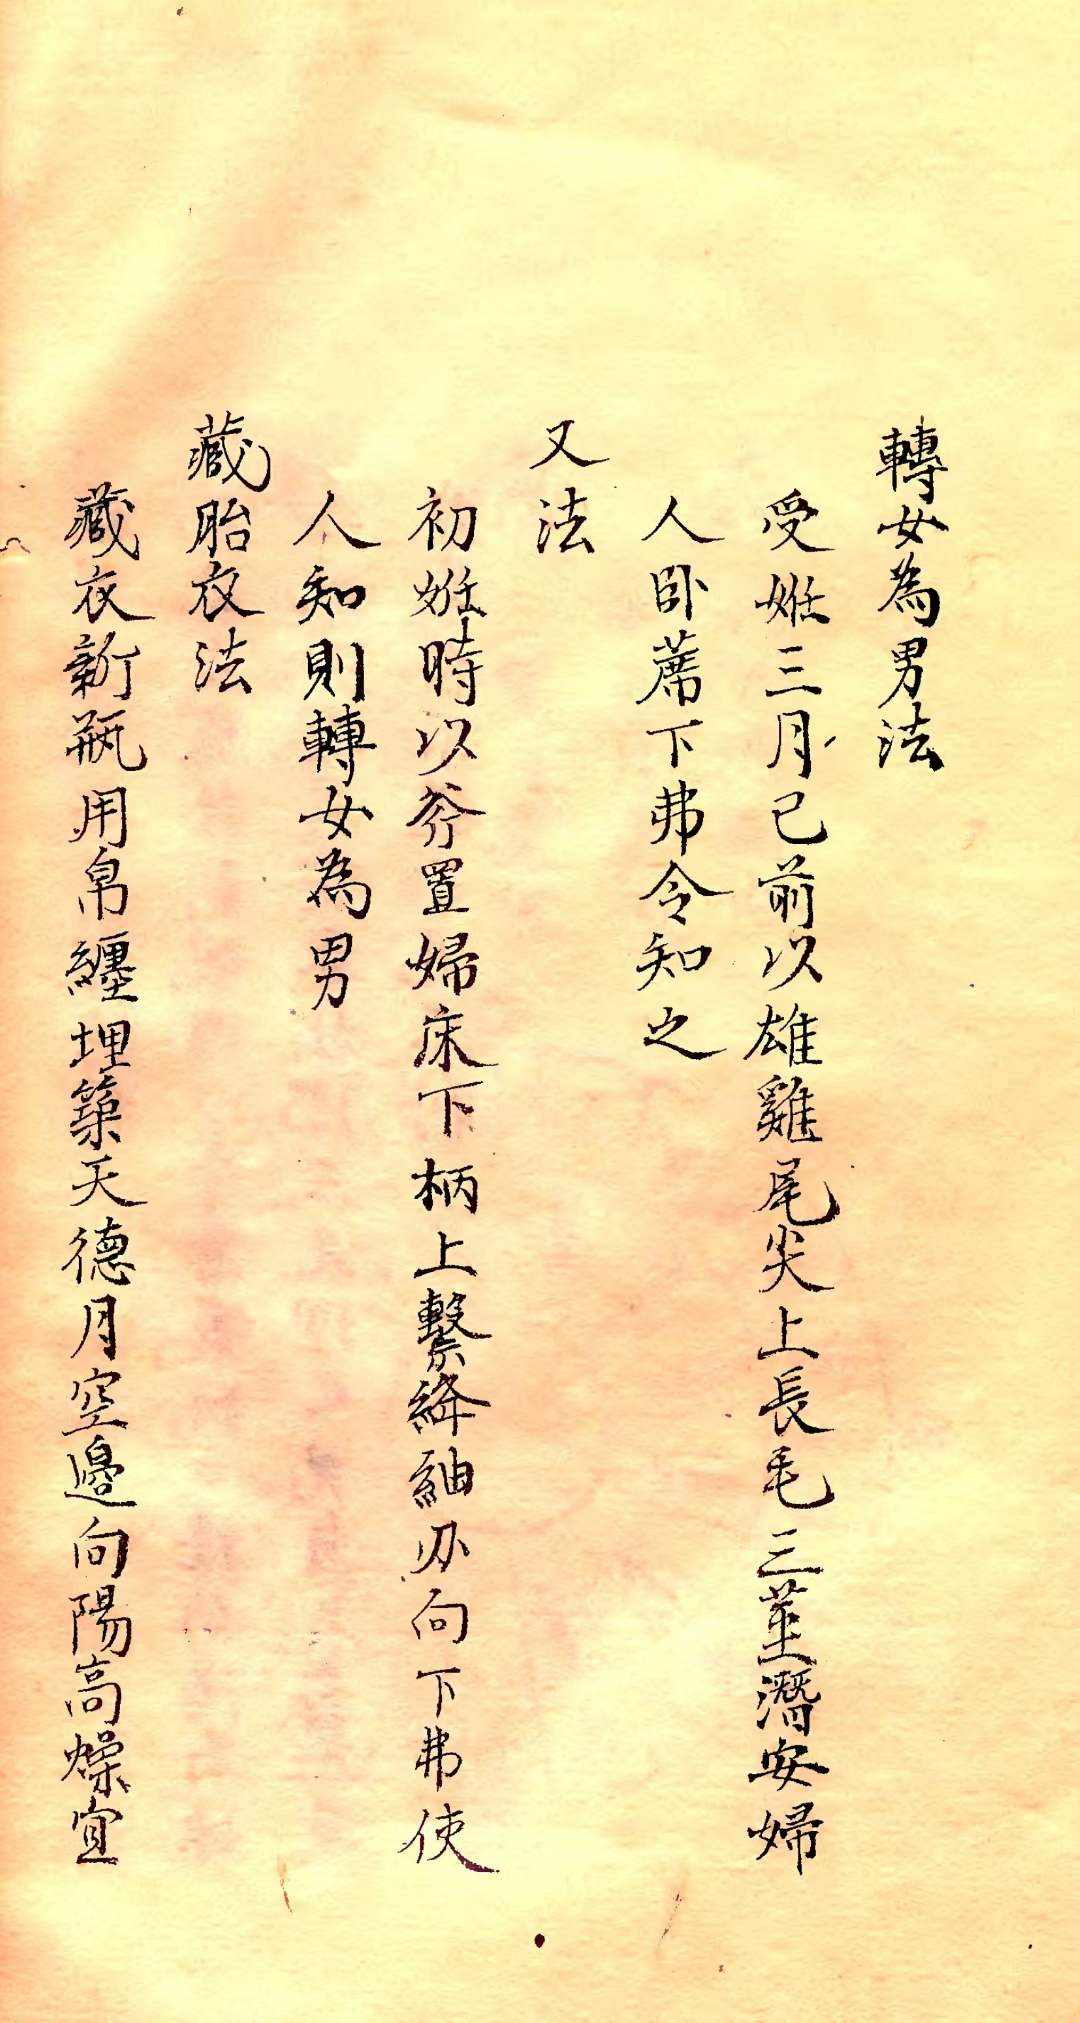 轉女為男法
受姙三月已前以雄雞尾尖上長毛三莖潛安婦
人臥蓆下弗令知之
又法
初姙時以斧置婦床下柄上繫絳紬刃向下弗使
人知則轉女為男
藏胎衣法
藏衣新瓶用帛纏埋築天德月空邊向陽高燥宜